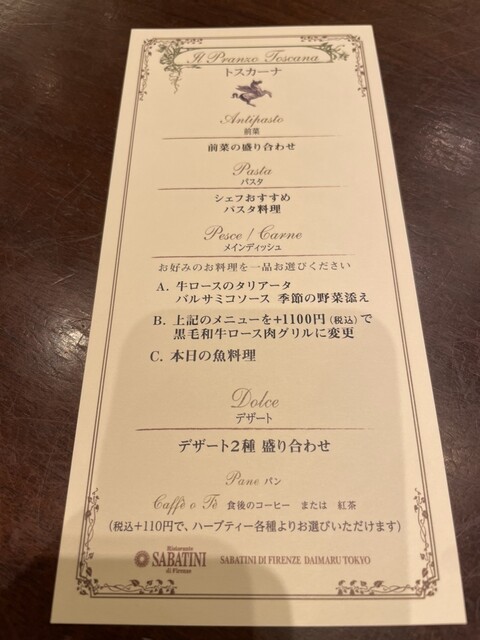 Il Pranzo Toscana
トスカーナ
Antipasto
前菜
前菜の盛り合わせ
Pasta
パスタ
シェフおすすめ
パスタ料理
Pesce / Carne
メインディッシュ
お好みのお料理を一品お選びください
A. 牛ロースのタリアータ
バルサミコソース 季節の野菜添え
B. 上記のメニューを+1100円(税込)で
黒毛和牛ロース肉グリルに変更
C. 本日の魚料理
Dolce
デザート
デザート2種 盛り合わせ
Pane パン
Caffè o Tè 食後のコーヒー または 紅茶
(税込+110円で、ハーブティー各種よりお選びいただけます)
Ristorante
SABATINI
di Firenze
SABATINI DI FIRENZE DAIMARU TOKYO